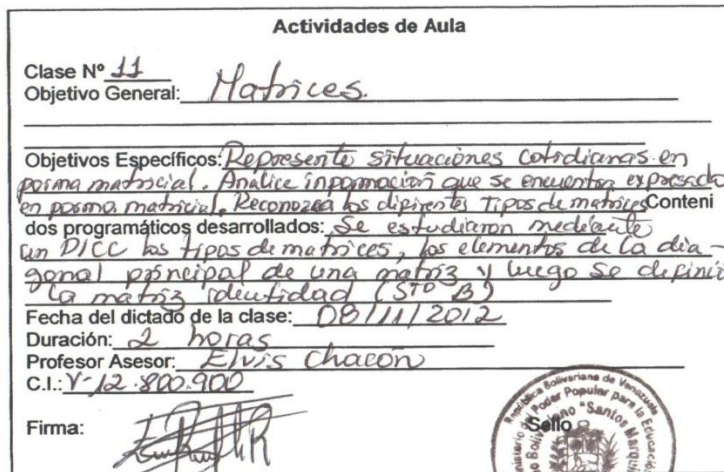 Actividades de Aula
Clase Nº 11
Objetivo General: Matrices.
Objetivos Específicos: Represente situaciones cotidianas en
forma matricial. Analice información que se encuentra expresada
en forma matricial. Reconozca los diferentes tipos de matrices Conteni
dos programáticos desarrollados: Se estudiaron mediante
un DICC los tipos de matrices, los elementos de la dia-
gonal principal de una matriz y luego se definió
la matriz identidad (5TO B)
Fecha del dictado de la clase: 08/11/2012
Duración: 2 horas
Profesor Asesor: Elvis Chacón
C.I.: V-12.800.900
Firma:
Sello
República Bolivariana de Venezuela
Poder Popular para la Educación
"Santos Marqu